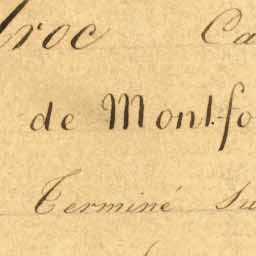 roc Ca
de Mont-fo
Terminé Su